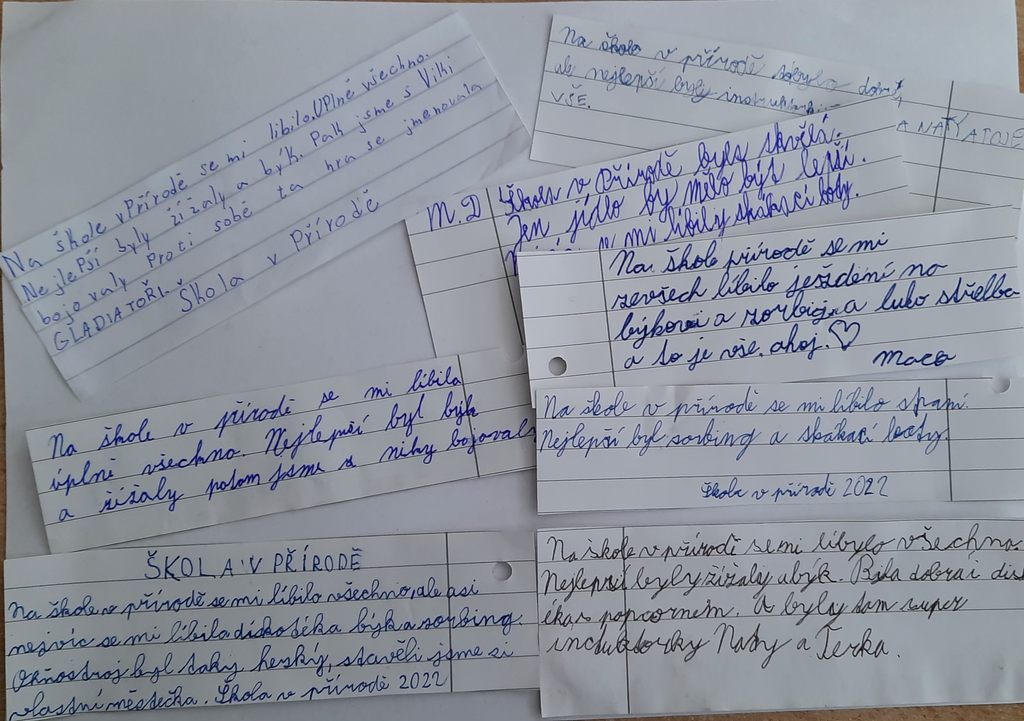 Na škole v Přírodě se mi libilo. UPlně všechno.
Nejlepší byly žížaly a býk. Pak jsme s Viki
bojovaly Proti sobě ta hra se jmenovala
GLADIATOŘI.
Škola v Přírodě
Na škole v přírodě dobře
ale nejlepší byly
VŠE.
A NATY ATOJE
M.D Škola v Přírodě byla skvělá.
Jen jídlo by mělo být lepší.
mi libily skákací boty.
Na škole přírodě se mi
zevšech líbilo ježdění na
býkovi a zorbing a luko střelba
a to je vše. ahoj. ♡
Maca
Na škole v přírodě se mi líbila
úplně všechno. Nejlepší byl býk
a žížaly potom jsme s niky bojovals
Na škole v přírodě se mi líbilo spaní.
Nejlepší byl sorbing a skákací boty.
Škola v přírodě 2022
ŠKOLA V PŘÍRODĚ
Na škole v přírodě se mi líbilo všechno, ale asi
nejvíc se mi líbila diskotéka býk a zorbing.
Ohňostroj byl taky heský, stavěli jsme si
vlastní městečka. Škola v přírodě 2022
Na škole v přírodě se mi líbylo všechno.
Nejlepší byly žížaly a býk. Byla dobrá i dis
éka s popcornem. A byly tam super
Naty a Terka.